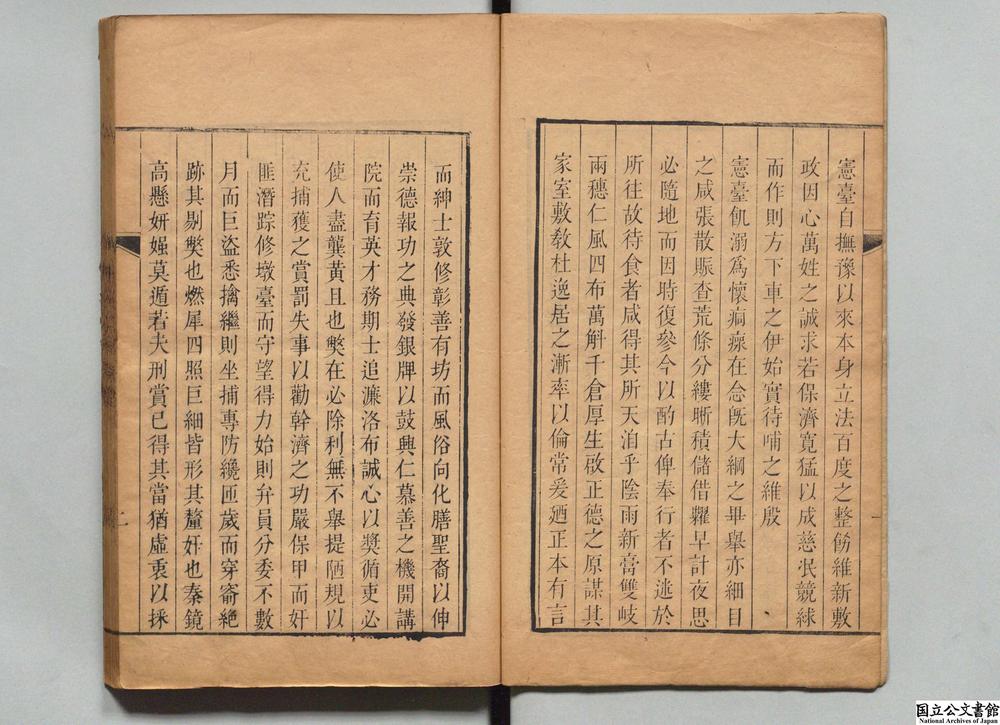 憲臺自撫豫以來本身立法百度之整飭維新敷
政因心萬姓之誠求若保濟寬猛以成慈泯競絿
而作則方下車之伊始實待哺之維殷
憲臺飢溺爲懷痌瘝在念旣大綱之畢舉亦細目
之咸張散賑查荒條分縷晰積儲借糶早計夜思
必隨地而因時復參今以酌古俾奉行者不逃於
所往故待食者咸得其所天洎乎陰雨新膏雙岐
兩穗仁風四布萬斛千倉厚生啟正德之原謀其
家室敷敎杜逸居之漸率以倫常爰廼正本有言
而紳士敦修彰善有坊而風俗向化膳聖裔以伸
崇德報功之典發銀牌以鼓興仁慕善之機開講
院而育英才務期士追濂洛布誠心以奬循吏必
使人盡龔黃且也獘在必除利無不舉提陋規以
充捕獲之賞罰失事以勸幹濟之功嚴保甲而奸
匪潛踪修墩臺而守望得力始則弁員分委不數
月而巨盜悉擒繼則坐捕專防纔匝歲而穿窬絶
跡其剔獘也燃犀四照巨細皆形其釐奸也秦鏡
高懸妍媸莫遁若夫刑賞已得其當猶虛衷以採
一
二
国立公文書館
National Archives of Japan